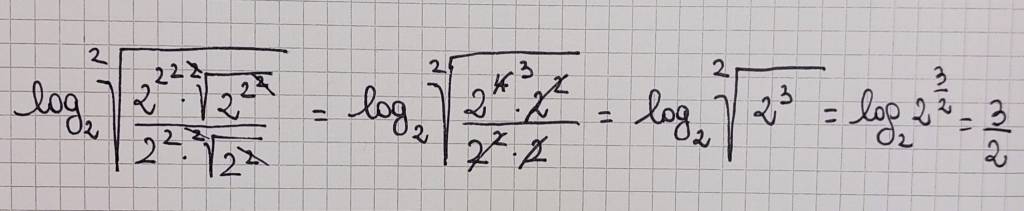 $\log_2 \sqrt[2]{\frac{2^{2^2} \cdot \sqrt[2]{2^{2^2}}}{2^2 \cdot \sqrt[2]{2^2}}} = \log_2 \sqrt[2]{\frac{2^{\cancel{4}\,3} \cdot \cancel{2}^{\cancel{2}}}{\cancel{2}^{\cancel{2}} \cdot \cancel{2}}} = \log_2 \sqrt[2]{2^3} = \log_2 2^{\frac{3}{2}} = \frac{3}{2}$